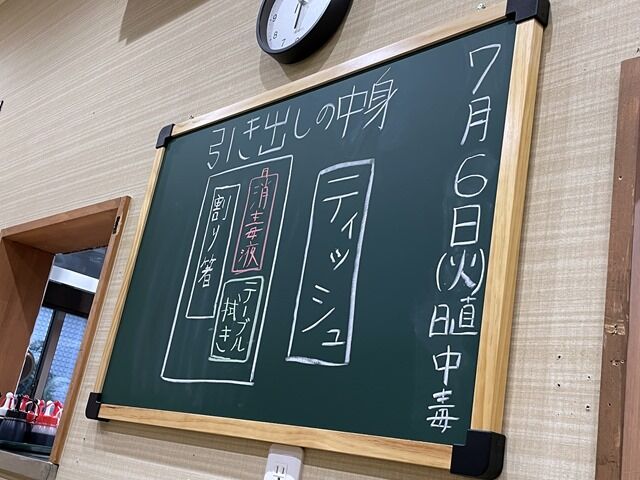 7月6日(火)日直中毒
引き出しの中身
ティッシュ
消毒液
割り箸
テーブル
拭き